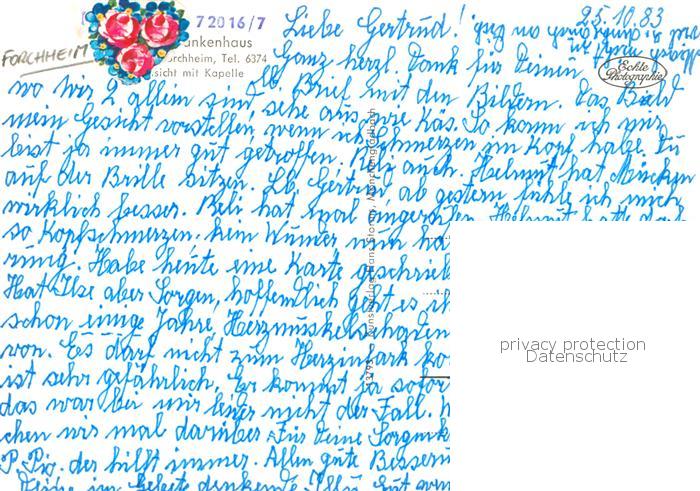 25.10.83
72016/7
Liebe Gertrud!
FORCHHEIM
ankenhaus
orchheim, Tel. 6374
Ganz herzl. Dank für Deinen
Echte Photographie
sicht mit Kapelle
lb. Brief mit den Bildern. Das Bild
wo wir 2 allein sind, sehe aus wie Käs. So kann ich mir
mein Gesicht vorstellen, wenn ich Schmerzen im Kopf habe. Du
bist ja immer gut getroffen. Beli auch. Helmut hat Mücken
auf der Brille sitzen. Lb. Gertrud ab gestern fühle ich mich
wirklich besser. Beli hat mal angerufen. Helmut hatte
so Kopfschmerzen. Kein Wunder nun
rung. Habe heute eine Karte geschrieb
Hat Ilse aber Sorgen, hoffentlich geht es ih
schon einige Jahre, Herzmuskelschaden
von. Es darf nicht zum Herzinfark ko
ist sehr gefährlich. Er kommt ja sofor
das war bei mir leider nicht der Fall.
chen wir mal darüber. Für Deine
P. Pio. der hilft immer. Allen gute Besseru
im Gebete
privacy protection
Datenschutz